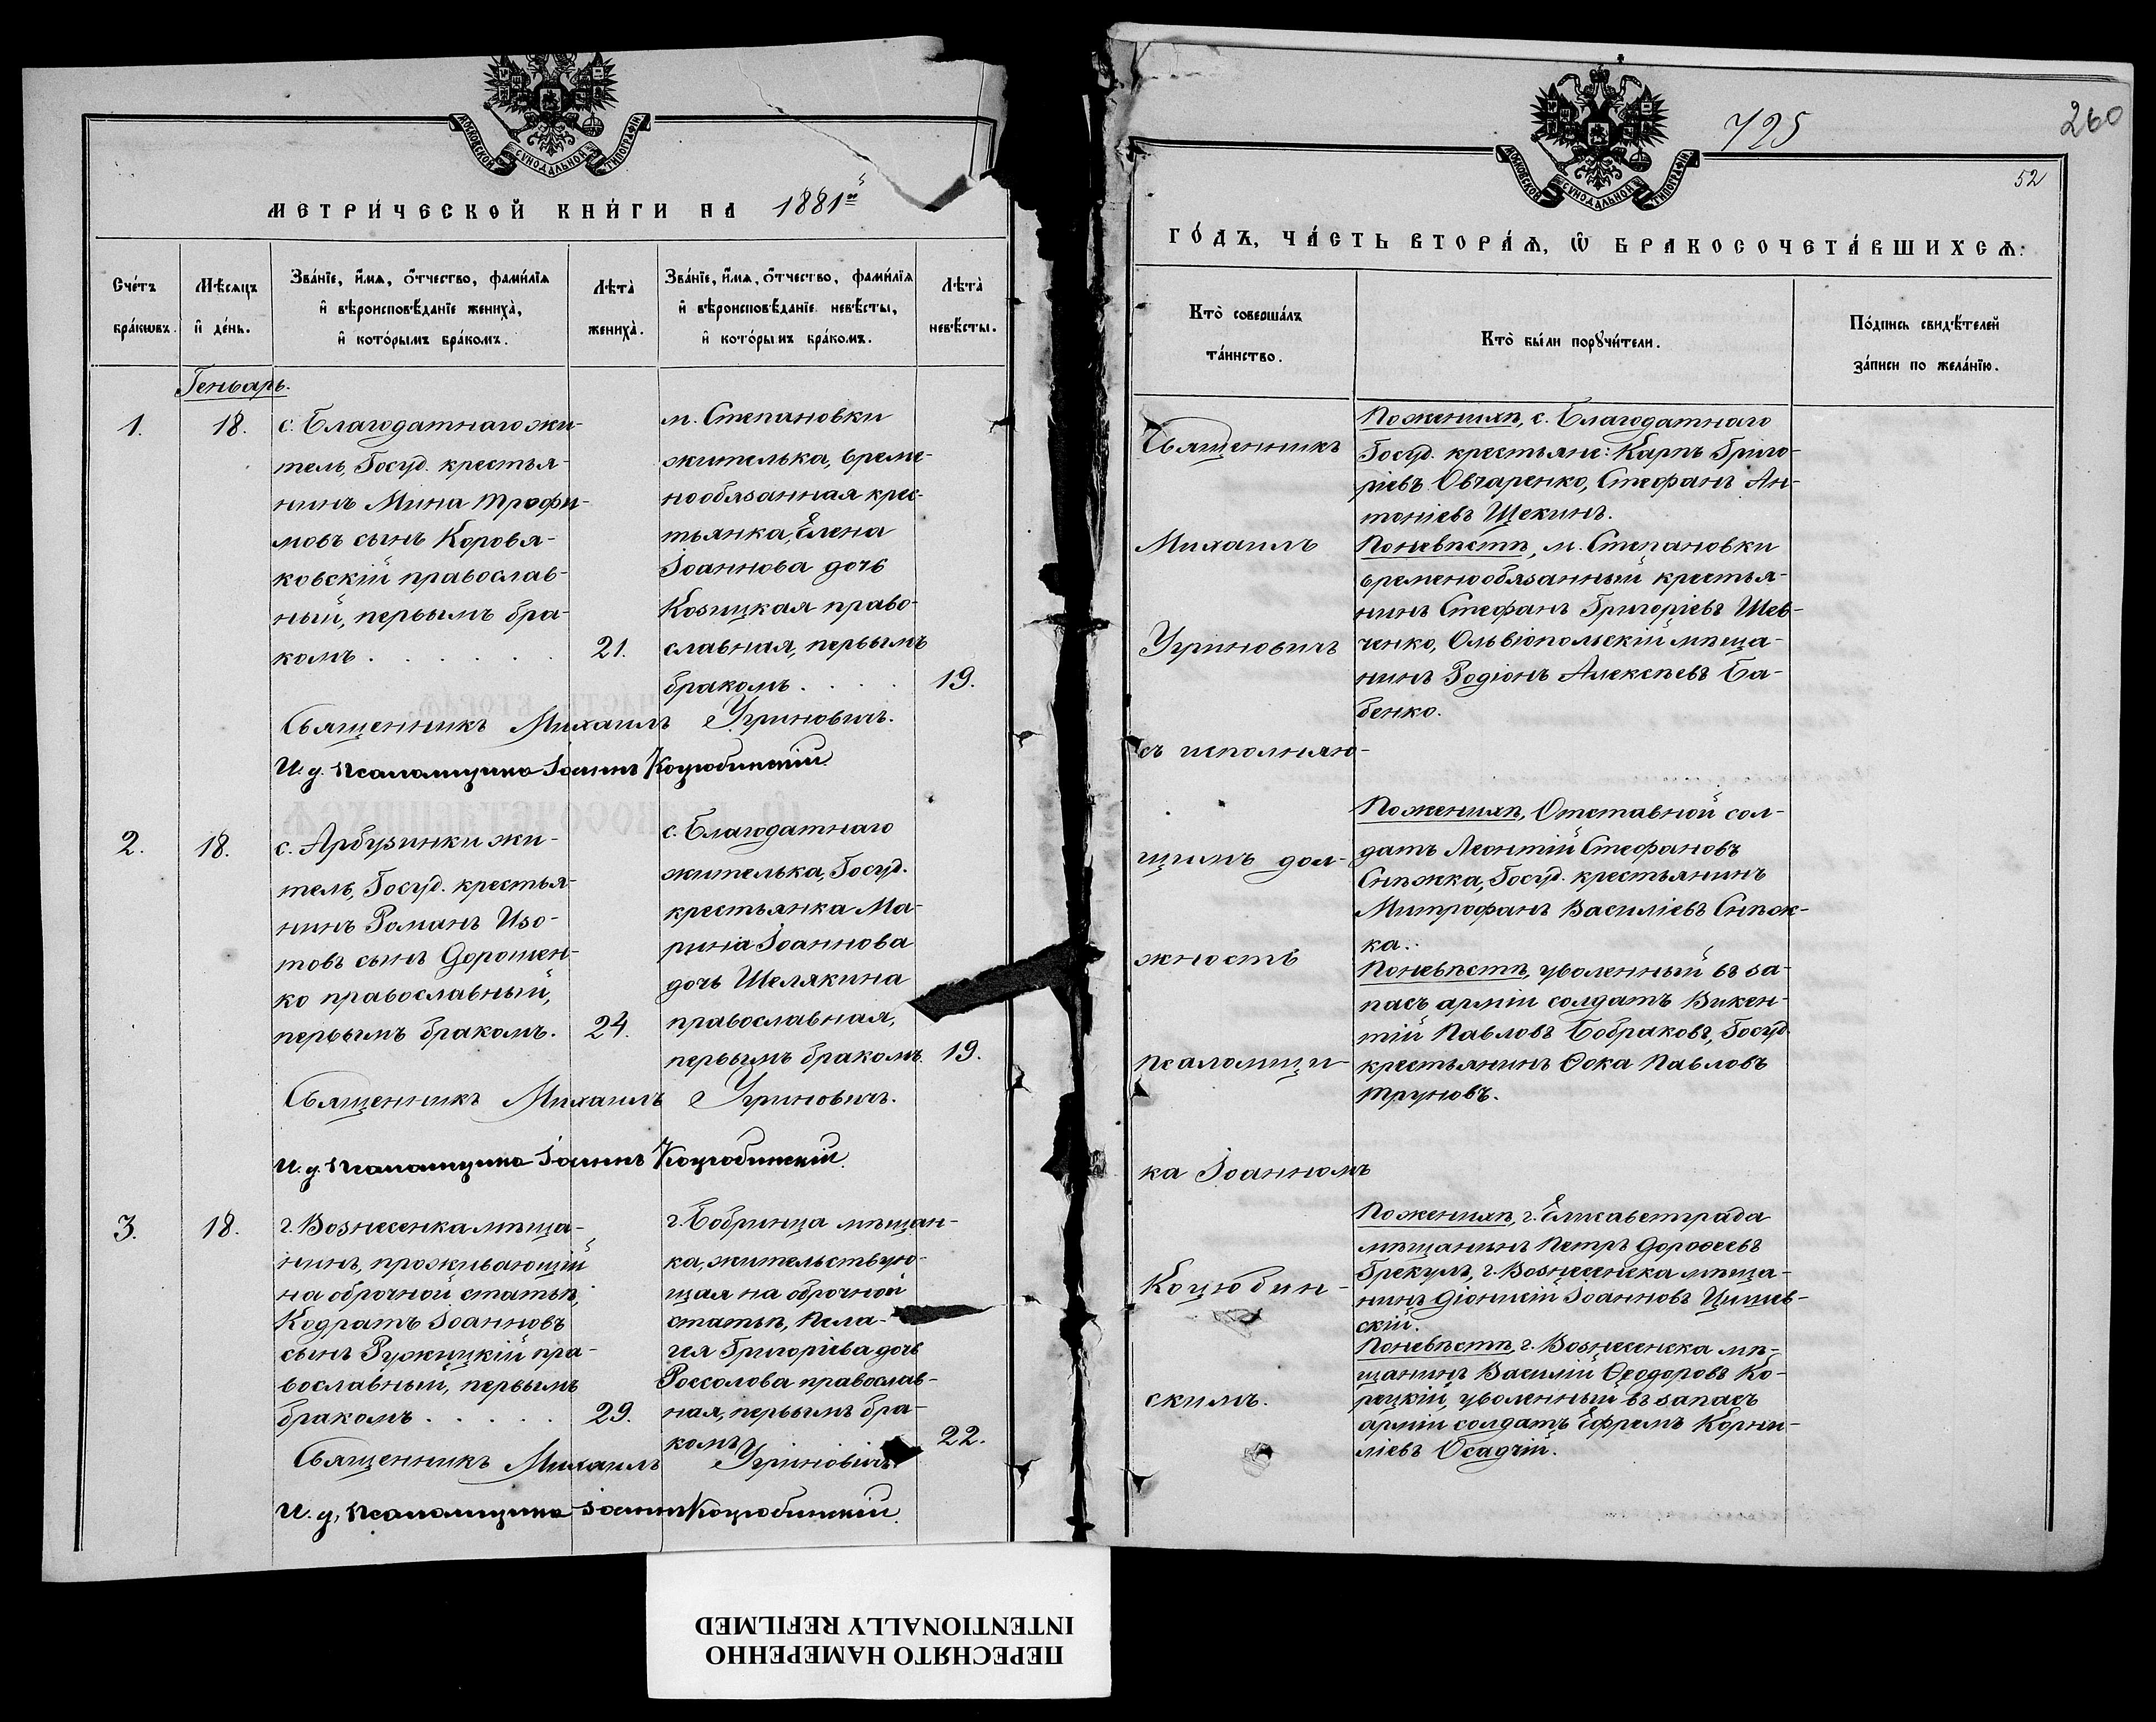 МОСКОВСКОЙ СѴНОДАЛЬНОЙ ТИПОГРАФІИ
МЕТРИ́ЧЕСКОЙ КНИ́ГИ НА 1881й
Сче́тъ
бра́кѡвъ.
Мѣ́сяцъ
и҆ де́нь.
Зва́нїе, и҆́мѧ, ѻ҆́тчество, фами́лїѧ
и҆ вѣроисповѣ́данїе жениха̀,
и҆ кото́рымъ бра́комъ.
Лѣта̀
жениха̀.
Зва́нїе, и҆́мѧ, ѻ҆́тчество, фами́лїѧ
и҆ вѣроисповѣ́данїе невѣ́сты,
и҆ кото́рымъ бра́комъ.
Лѣта̀
невѣ́сты.
Геньварь.
1.
18.
с. Благодатнаго жи-
тель, Госуд. крестья-
нинъ Мина Трофи-
мовъ сынъ Коровя-
ковскій православ-
ный, первымъ бра-
комъ . . . . . .
21.
м. Степановки
жителька, време-
нообязанная крес-
тьянка, Елена
Іоаннова дочь
Козицкая право-
славная, первымъ
бракомъ. . . .
19.
Священникъ Михаилъ Угриновичъ.
И. д. псаломщика Іоаннъ Коцюбинскій.
2.
18.
с. Арбузинки жи-
тель, Госуд. крестья-
нинъ Романъ Изо-
товъ сынъ Дорошен-
ко православный,
первымъ бракомъ.
24.
с. Благодатнаго
жителька, Госуд.
крестьянка Ма-
рина Іоаннова
дочь Шелякина
православная,
первымъ бракомъ.
19.
Священникъ Михаилъ Угриновичъ.
И. д. псаломщика Іоаннъ Коцюбинскій.
3.
18.
г. Вознесенка мѣща-
нинъ, проживающій
на оброчной статьѣ,
Кодратъ Іоанновъ
сынъ Ружицкій пра-
вославный, первымъ
бракомъ . . . . .
29.
г. Бобринца мѣщан-
ка, жительствую-
щая на оброчной
статьѣ, Пела-
гея Григоріева дочь
Россолова православ-
ная, первымъ бра-
комъ
22.
Священникъ Михаилъ Угриновичъ.
И. д. псаломщика Іоаннъ Коцюбинскій.
725
260
52
МОСКОВСКОЙ СѴНОДАЛЬНОЙ ТИПОГРАФІИ
ГО́ДЪ, ЧА́СТЬ ВТОРА́Ѧ, Ѡ҆ БРАКОСОЧЕТА́ВШИХСѦ:
Кто̀ соверша́лъ
та́инство.
Кто̀ бы́ли порꙋчи́тели.
По́дпись свидѣ́телей
за́писи по жела́нїю.
Священникъ
Михаилъ
Угриновичъ
съ исполняю-
щимъ дол-
жность
псаломщи-
ка Іоанномъ
Коцюбин-
скимъ.
По женихѣ, с. Благодатнаго
Госуд. крестьяне: Карпъ Григо-
ріевъ Овчаренко, Стефанъ Ан-
тоніевъ Щекинъ.
По невѣстѣ, м. Степановки
временообязанный крестья-
нинъ Стефанъ Григоріевъ Шев-
ченко, Ольвіопольскій мѣща-
нинъ Родіонъ Алексѣевъ Ба-
бенко.
По женихѣ, Отставной сол-
датъ Леонтій Стефановъ
Снѣжка, Госуд. крестьянинъ
Митрофанъ Василіевъ Снѣж-
ка.
По невѣстѣ, уволенный въ за-
пасъ арміи солдатъ Викен-
тій Павловъ Бобраковъ, Госуд.
крестьянинъ Ѳока Павловъ
Труновъ.
По женихѣ, г. Елисаветграда
мѣщанинъ Петръ Дороѳеевъ
Грекулъ, г. Вознесенска мѣща-
нинъ Діонисій Іоанновъ Цишев-
скій.
По невѣстѣ, г. Вознесенска мѣ-
щанинъ Василій Ѳеодоровъ Ко-
рецкій, уволенный въ запасъ
арміи солдатъ Ефремъ Корни-
ліевъ Осадчій.
ПЕРЕСНЯТО НАМЕРЕННО
INTENTIONALLY REFILMED